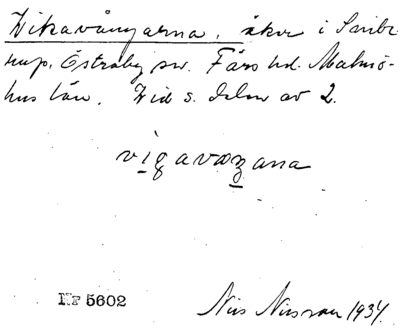 Vikavångarna, åker i Smibe-
rup, Östraby sn. Färs hd. Malmö-
hus län. Vid s. delen av 2.
vigavaŋana
Nr 5602
Nils Nilsson 1934.